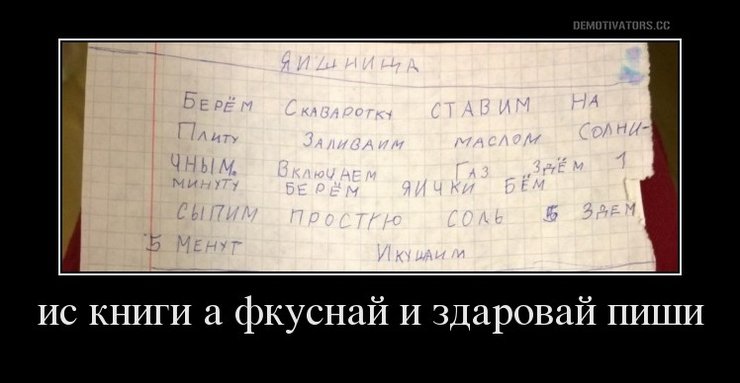 DEMOTIVATORS.CC
ЯИШНИЦА
БЕРЁМ СКАВАРОТКУ СТАВИМ НА
ПЛИТУ ЗАЛИВАИМ МАСЛОМ СОЛНИ-
ЧНЫМ. ВКЛЮЧАЕМ ГАЗ ЗДЁМ 1
МИНУТУ БЕРЁМ ЯИЧКИ БЁМ
СЫПИМ ПРОСТУЮ СОЛЬ ЗДЕМ
5 МЕНУТ ИКУШАИМ
ис книги а фкуснай и здаровай пиши